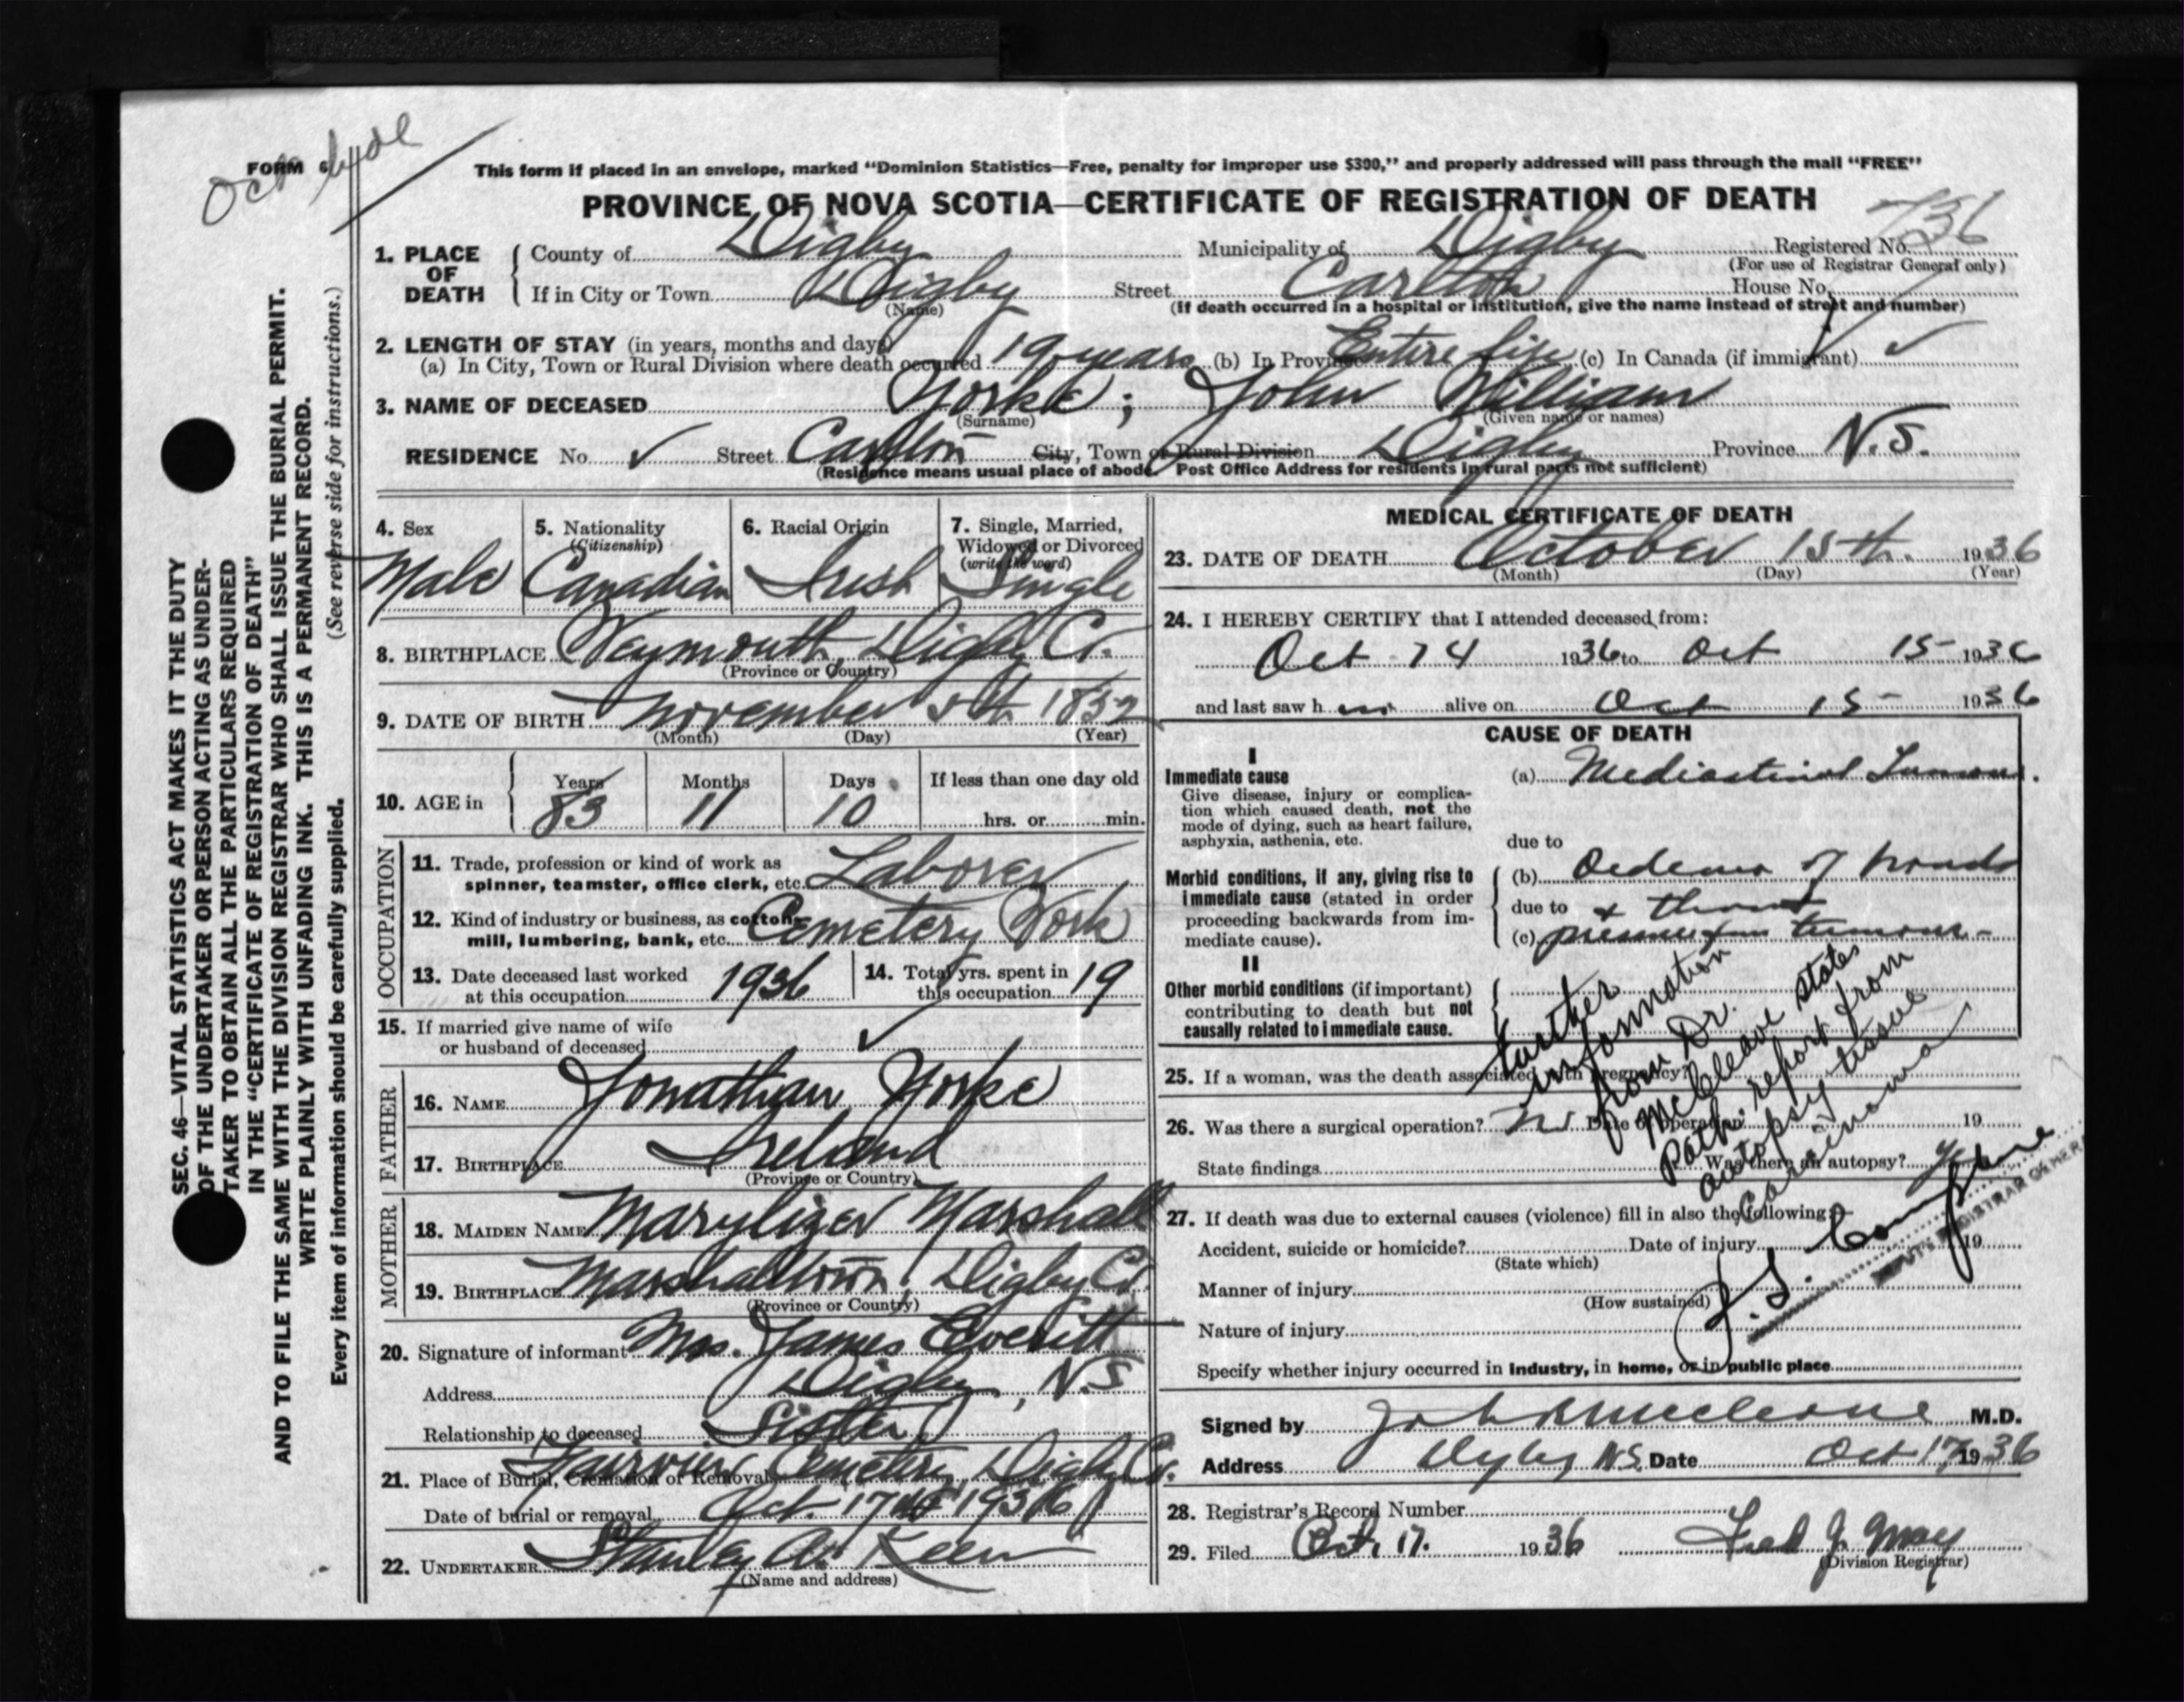 Oct
FORM 6
This form if placed in an envelope, marked "Dominion Statistics—Free, penalty for improper use $300," and properly addressed will pass through the mail "FREE"
PROVINCE OF NOVA SCOTIA—CERTIFICATE OF REGISTRATION OF DEATH
736
1. PLACE OF DEATH { County of Digby Municipality of Digby Registered No.
(For use of Registrar General only)
If in City or Town Digby Street Carlton House No.
(Name) (If death occurred in a hospital or institution, give the name instead of street and number)
2. LENGTH OF STAY (in years, months and days)
(a) In City, Town or Rural Division where death occurred 19 years (b) In Province Entire Life (c) In Canada (if immigrant) ✓
3. NAME OF DECEASED Yorke; John William
(Surname) (Given name or names)
RESIDENCE No. ✓ Street Carlton City, Town or Rural Division Digby Province N.S.
(Residence means usual place of abode. Post Office Address for residents in rural parts not sufficient)
4. Sex Male
5. Nationality (Citizenship) Canadian
6. Racial Origin Irish
7. Single, Married, Widowed or Divorced (write the word) Single
8. BIRTHPLACE Weymouth, Digby Co.
(Province or Country)
9. DATE OF BIRTH November 5th 1852
(Month) (Day) (Year)
10. AGE in { Years 83 Months 11 Days 10 If less than one day old
hrs. or min.
OCCUPATION
11. Trade, profession or kind of work as
spinner, teamster, office clerk, etc. Laborer
12. Kind of industry or business, as cotton
mill, lumbering, bank, etc. Cemetery Work
13. Date deceased last worked
at this occupation 1936
14. Total yrs. spent in
this occupation 19
15. If married give name of wife
or husband of deceased ✓
FATHER
16. NAME Jonathan Yorke
17. BIRTHPLACE Ireland
(Province or Country)
MOTHER
18. MAIDEN NAME Marylizer Marshall
19. BIRTHPLACE Marshalltown, Digby Co.
(Province or Country)
20. Signature of informant Mrs. James Everitt
Address Digby, N.S
Relationship to deceased Sister
21. Place of Burial, Cremation or Removal Fairview Cemetery Digby Co.
Date of burial or removal Oct. 17th 1936
22. UNDERTAKER Stanley A. Keen
(Name and address)
MEDICAL CERTIFICATE OF DEATH
23. DATE OF DEATH October 15th. 1936
(Month) (Day) (Year)
24. I HEREBY CERTIFY that I attended deceased from:
Oct 14 1936 to Oct 15 1936
and last saw h im alive on Oct 15 1936
CAUSE OF DEATH
I
Immediate cause (a) Mediastinal Tumour.
Give disease, injury or complication which caused death, not the
mode of dying, such as heart failure,
asphyxia, asthenia, etc.
due to
Morbid conditions, if any, giving rise to
immediate cause (stated in order
proceeding backwards from immediate cause).
(b) Oedema of
due to &
(c) pressure from tumour
II
Other morbid conditions (if important)
contributing to death but not
causally related to immediate cause.
Further
information
from Dr.
McCleave states
Path. report from
autopsy tissue
Carcinoma
25. If a woman, was the death associated with pregnancy?
26. Was there a surgical operation? No Date of operation 19
State findings Was there an autopsy? Yes
27. If death was due to external causes (violence) fill in also the following:
Accident, suicide or homicide? Date of injury 19
(State which)
Manner of injury
(How sustained)
Nature of injury
Specify whether injury occurred in industry, in home, or in public place
DEPUTY REGISTRAR GENERAL
Signed by John R McCleave M.D.
Address Digby N.S. Date Oct 17 1936
28. Registrar's Record Number
29. Filed Oct. 17. 1936 Fred J. May
(Division Registrar)
SEC. 46—VITAL STATISTICS ACT MAKES IT THE DUTY
OF THE UNDERTAKER OR PERSON ACTING AS UNDER-
TAKER TO OBTAIN ALL THE PARTICULARS REQUIRED
IN THE "CERTIFICATE OF REGISTRATION OF DEATH"
AND TO FILE THE SAME WITH THE DIVISION REGISTRAR WHO SHALL ISSUE THE BURIAL PERMIT.
WRITE PLAINLY WITH UNFADING INK. THIS IS A PERMANENT RECORD.
Every item of information should be carefully supplied. (See reverse side for instructions.)